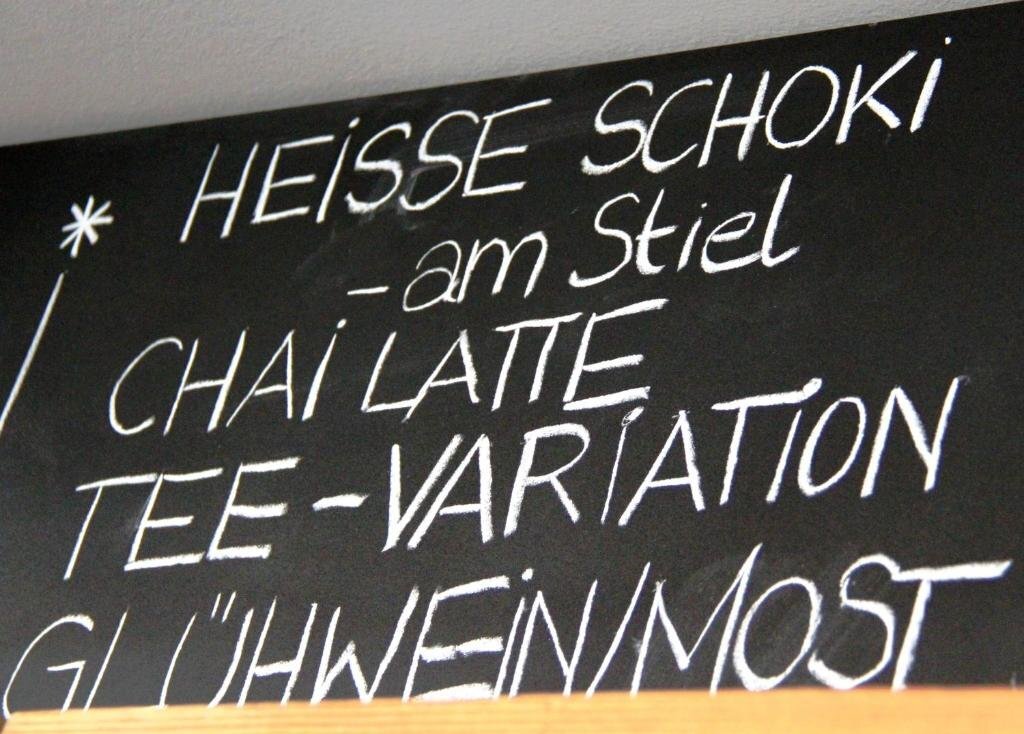 * HEISSE SCHOKI
- am Stiel
CHAI LATTE
TEE-VARIATION
GLÜHWEIN/MOST